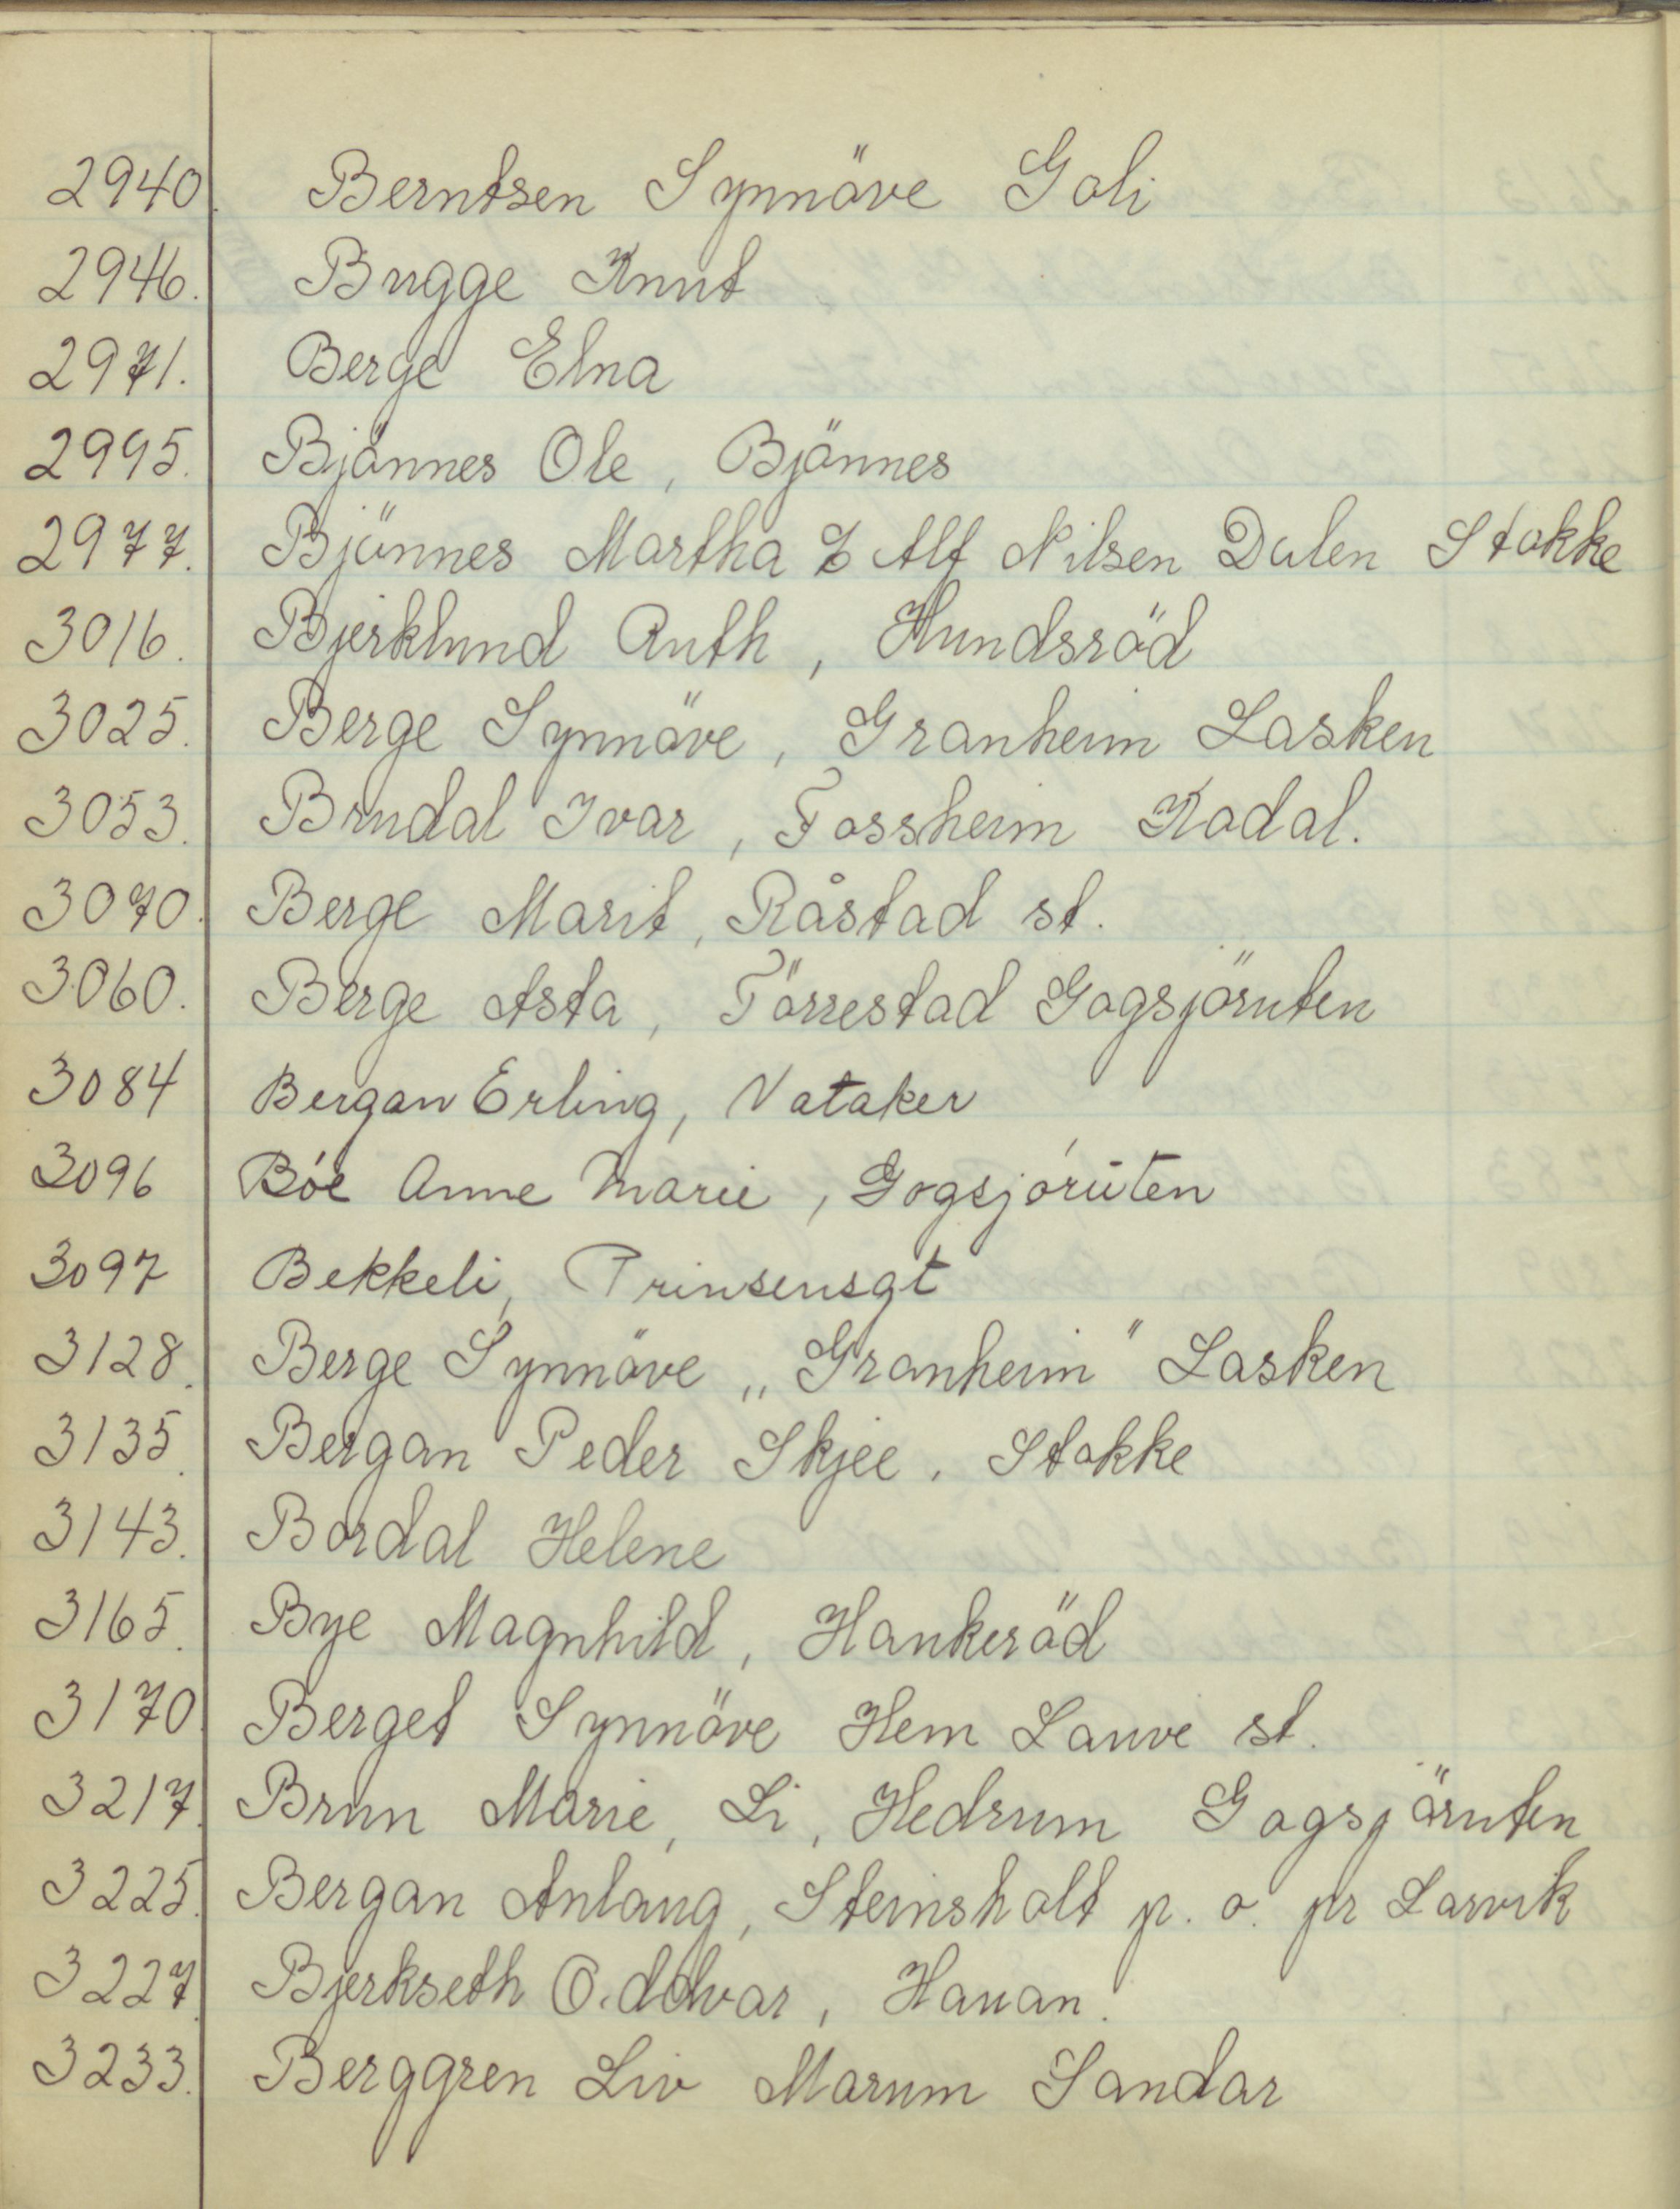 2940. Berntsen Synnöve Goli
2946. Bugge Knut
2971. Berge Elna
2995. Bjönnes Ole, Bjönnes
2977. Bjönnes Martha % Alf Nilsen Dalen Stokke
3016. Bjerklund Ruth, Hundsröd
3025. Berge Synnöve, Granheim Lasken
3053. Brudal Ivar, Fossheim Kodal.
3070. Berge Marit, Råstad st.
3060. Berge Asta, Törrestad Gogsjöruten
3084 Bergan Erling, Vataker
3096 Bóe Anne Marie, Gogsjóruten
3097 Bekkeli, Prinsensgt
3128. Berge Synnöve „Granheim" Lasken
3135. Bergan Peder Skjee, Stokke
3143. Bordal Helene
3165. Bye Magnhild, Hankeröd
3170. Berget Synnöve Hem Lauve st.
3217. Brun Marie, Li, Hedrum Gogsjöruten
3225. Bergan Anlaug, Steinsholt p. o. pr Larvik
3227. Bjerkseth Oddvar, Hauan.
3233. Berggren Liv Marum Sandar